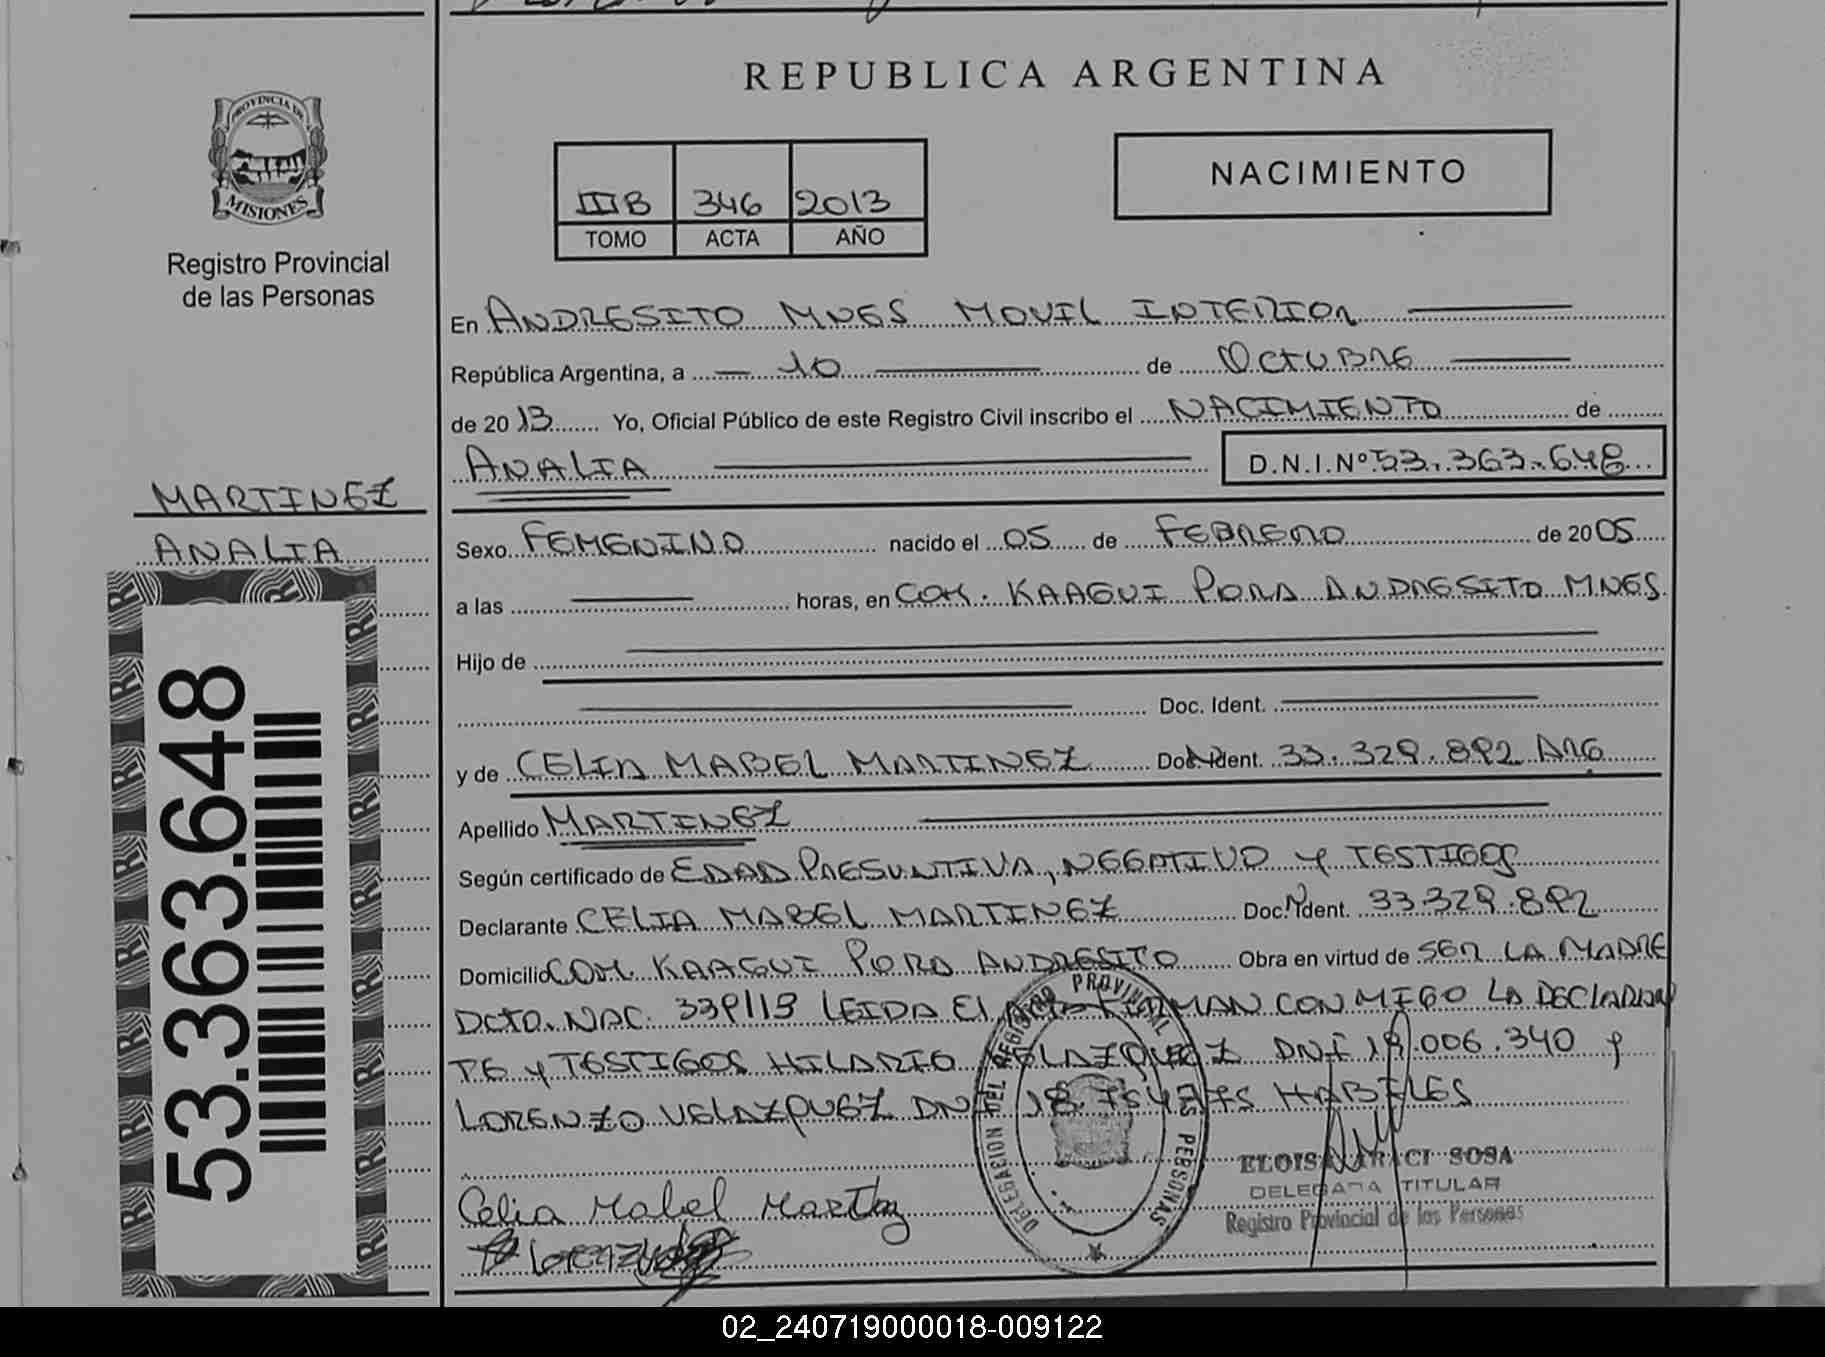 REPUBLICA ARGENTINA
PROVINCIA DE
MISIONES
Registro Provincial
de las Personas
IIIB 346 2013
TOMO ACTA AÑO
NACIMIENTO
En ANDRESITO MNES MOVIL INTERIOR
República Argentina, a 10 de OCTUBRE
de 2013 Yo, Oficial Público de este Registro Civil inscribo el NACIMIENTO de
ANALIA D.N.I.Nº 53.363.648
MARTINEZ
ANALIA
53.363.648
Sexo FEMENINO nacido el 05 de FEBRERO de 2005
a las horas, en COM. KAAGUI PORA ANDRESITO MNES
Hijo de
Doc. Ident.
y de CELIA MABEL MARTINEZ Doc. Ident. 33.329.892 ARG
Apellido MARTINEZ
Según certificado de EDAD PRESUNTIVA, NEGATIVO Y TESTIGOS
Declarante CELIA MABEL MARTINEZ Doc. Ident. 33.329.892
Domicilio COM. KAAGUI PORA ANDRESITO Obra en virtud de SER LA MADRE
DCTO. NAC. 339/13 LEIDA EL ACTA FIRMAN CON MIGO LA DECLARAN
TE Y TESTIGOS HILARIO VELAZQUEZ DNI 19.006.340 y
LORENZO VELAZQUEZ DNI HABILES
DELEGACION DEL REGISTRO PROVINCIAL PERSONAS
Celia Mabel
ELOISA SOSA
DELEGADA TITULAR
Registro Provincial de las Personas
02_240719000018-009122